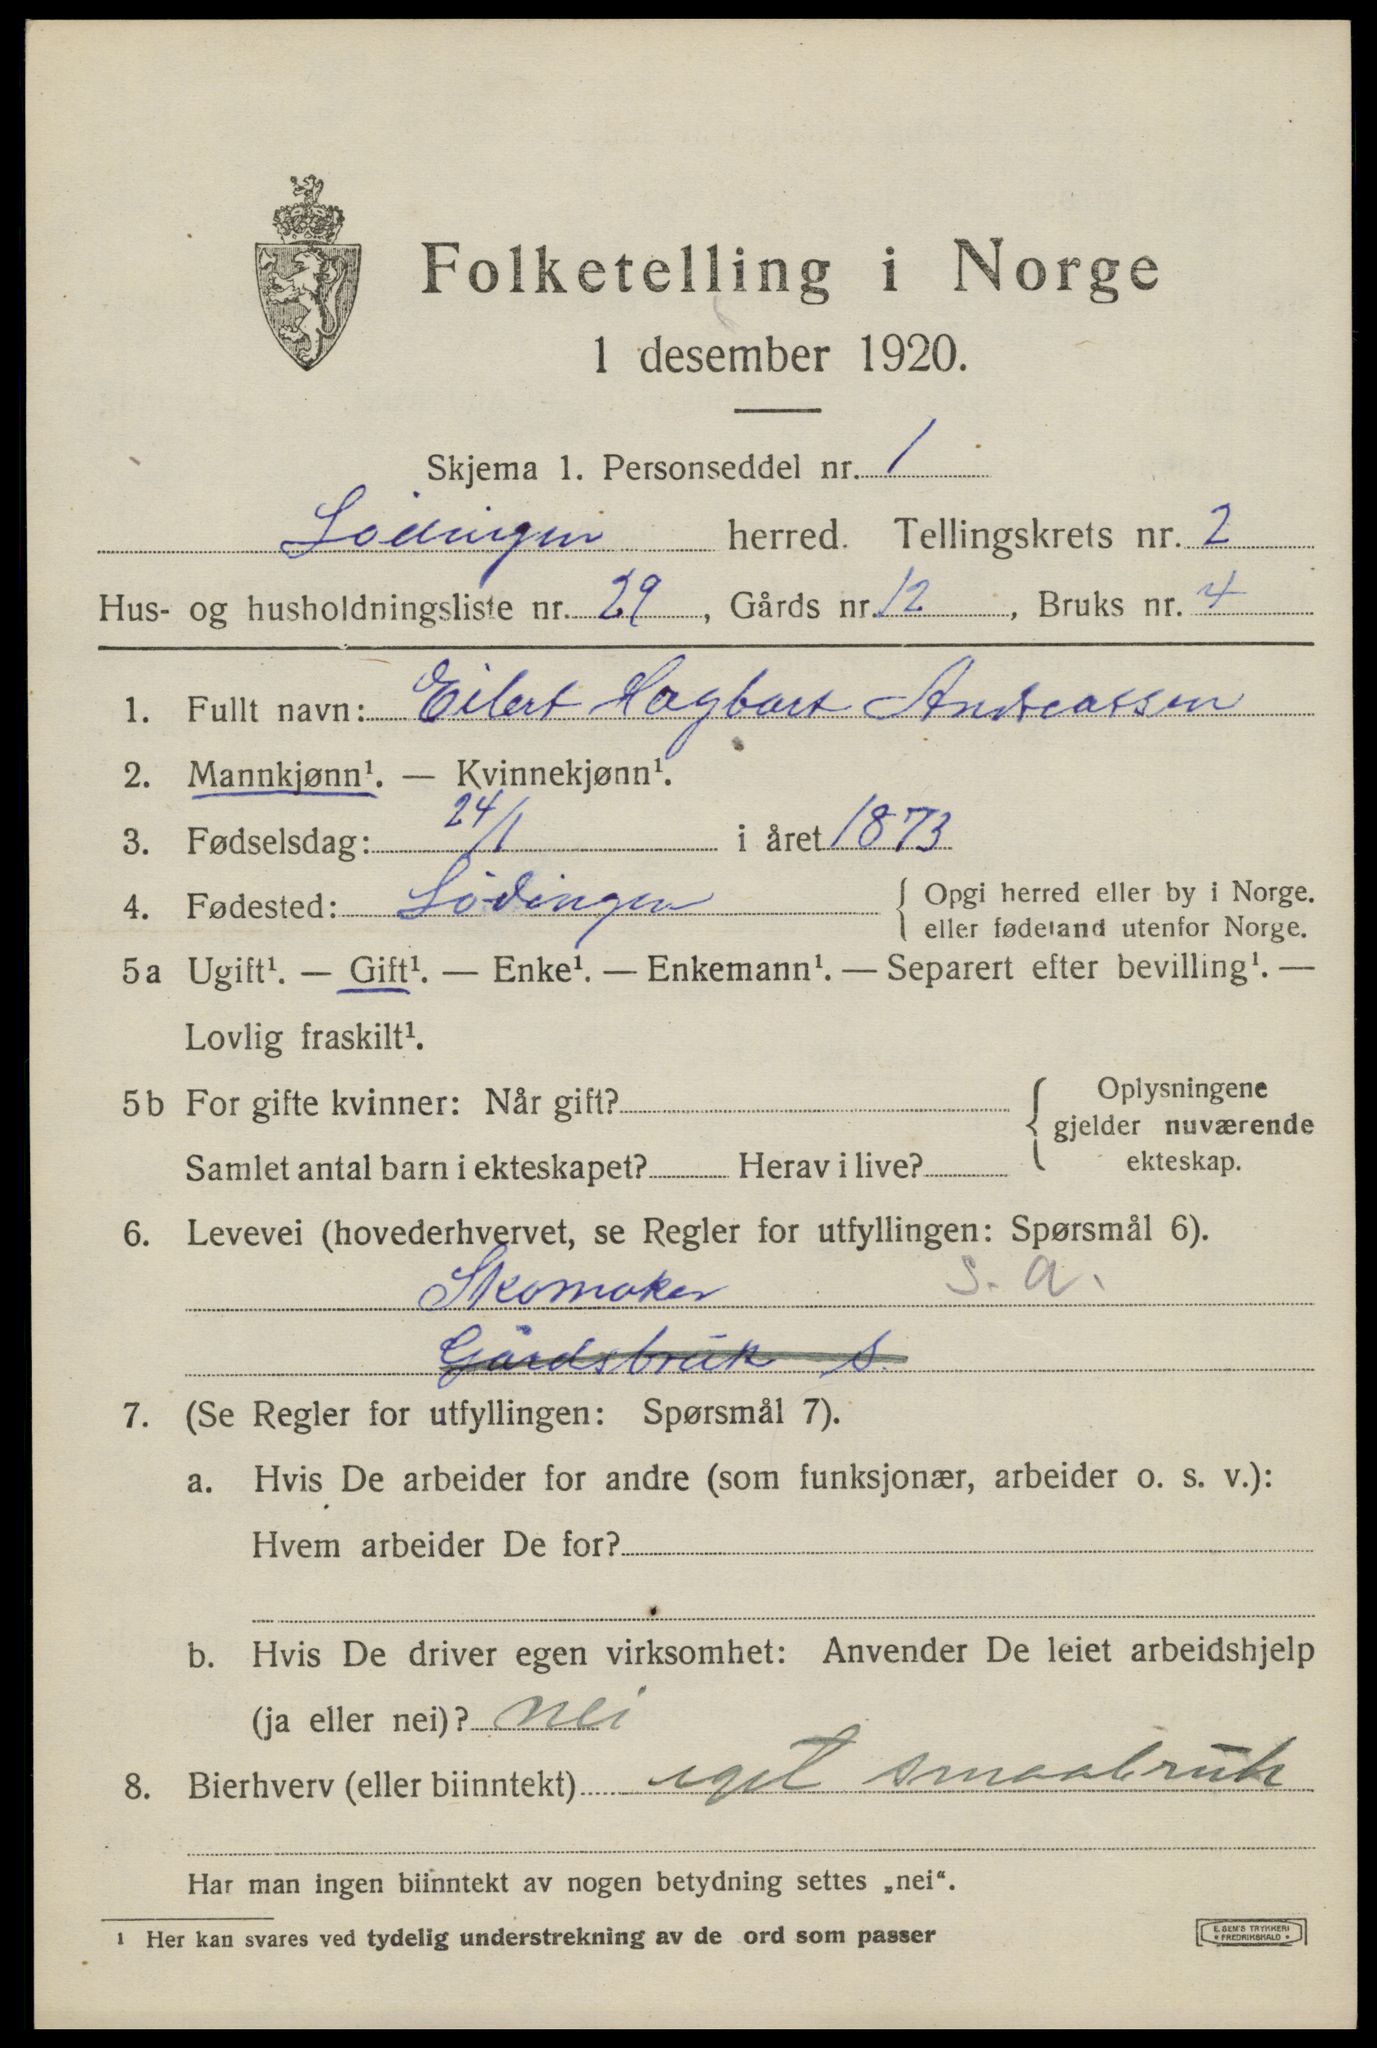 Folketelling i Norge
1 desember 1920.
Skjema 1. Personseddel nr. 1
Lödingen herred. Tellingskrets nr. 2
Hus- og husholdningsliste nr. 29, Gårds nr. 12, Bruks nr. 4
1. Fullt navn: Eilert Hagbart Andreassen
2. Mannkjønn¹. — Kvinnekjønn¹.
3. Fødselsdag: 24/1 i året 1873
4. Fødested: Lödingen { Opgi herred eller by i Norge.
eller fødeland utenfor Norge.
5a Ugift¹. — Gift¹. — Enke¹. — Enkemann¹. — Separert efter bevilling¹. —
Lovlig fraskilt¹.
5b For gifte kvinner: Når gift? { Oplysningene
gjelder nuværende
Samlet antal barn i ekteskapet? Herav i live? ekteskap.
6. Levevei (hovederhvervet, se Regler for utfyllingen: Spørsmål 6).
Skomaker s. a.
Gårdsbruk s.
7. (Se Regler for utfyllingen: Spørsmål 7).
a. Hvis De arbeider for andre (som funksjonær, arbeider o. s. v.):
Hvem arbeider De for?
b. Hvis De driver egen virksomhet: Anvender De leiet arbeidshjelp
(ja eller nei)? nei
8. Bierhverv (eller biinntekt) eget smaabruk
Har man ingen biinntekt av nogen betydning settes „nei“.
1 Her kan svares ved tydelig understrekning av de ord som passer
E. SEM'S TRYKKERI
FREDRIKSHALD